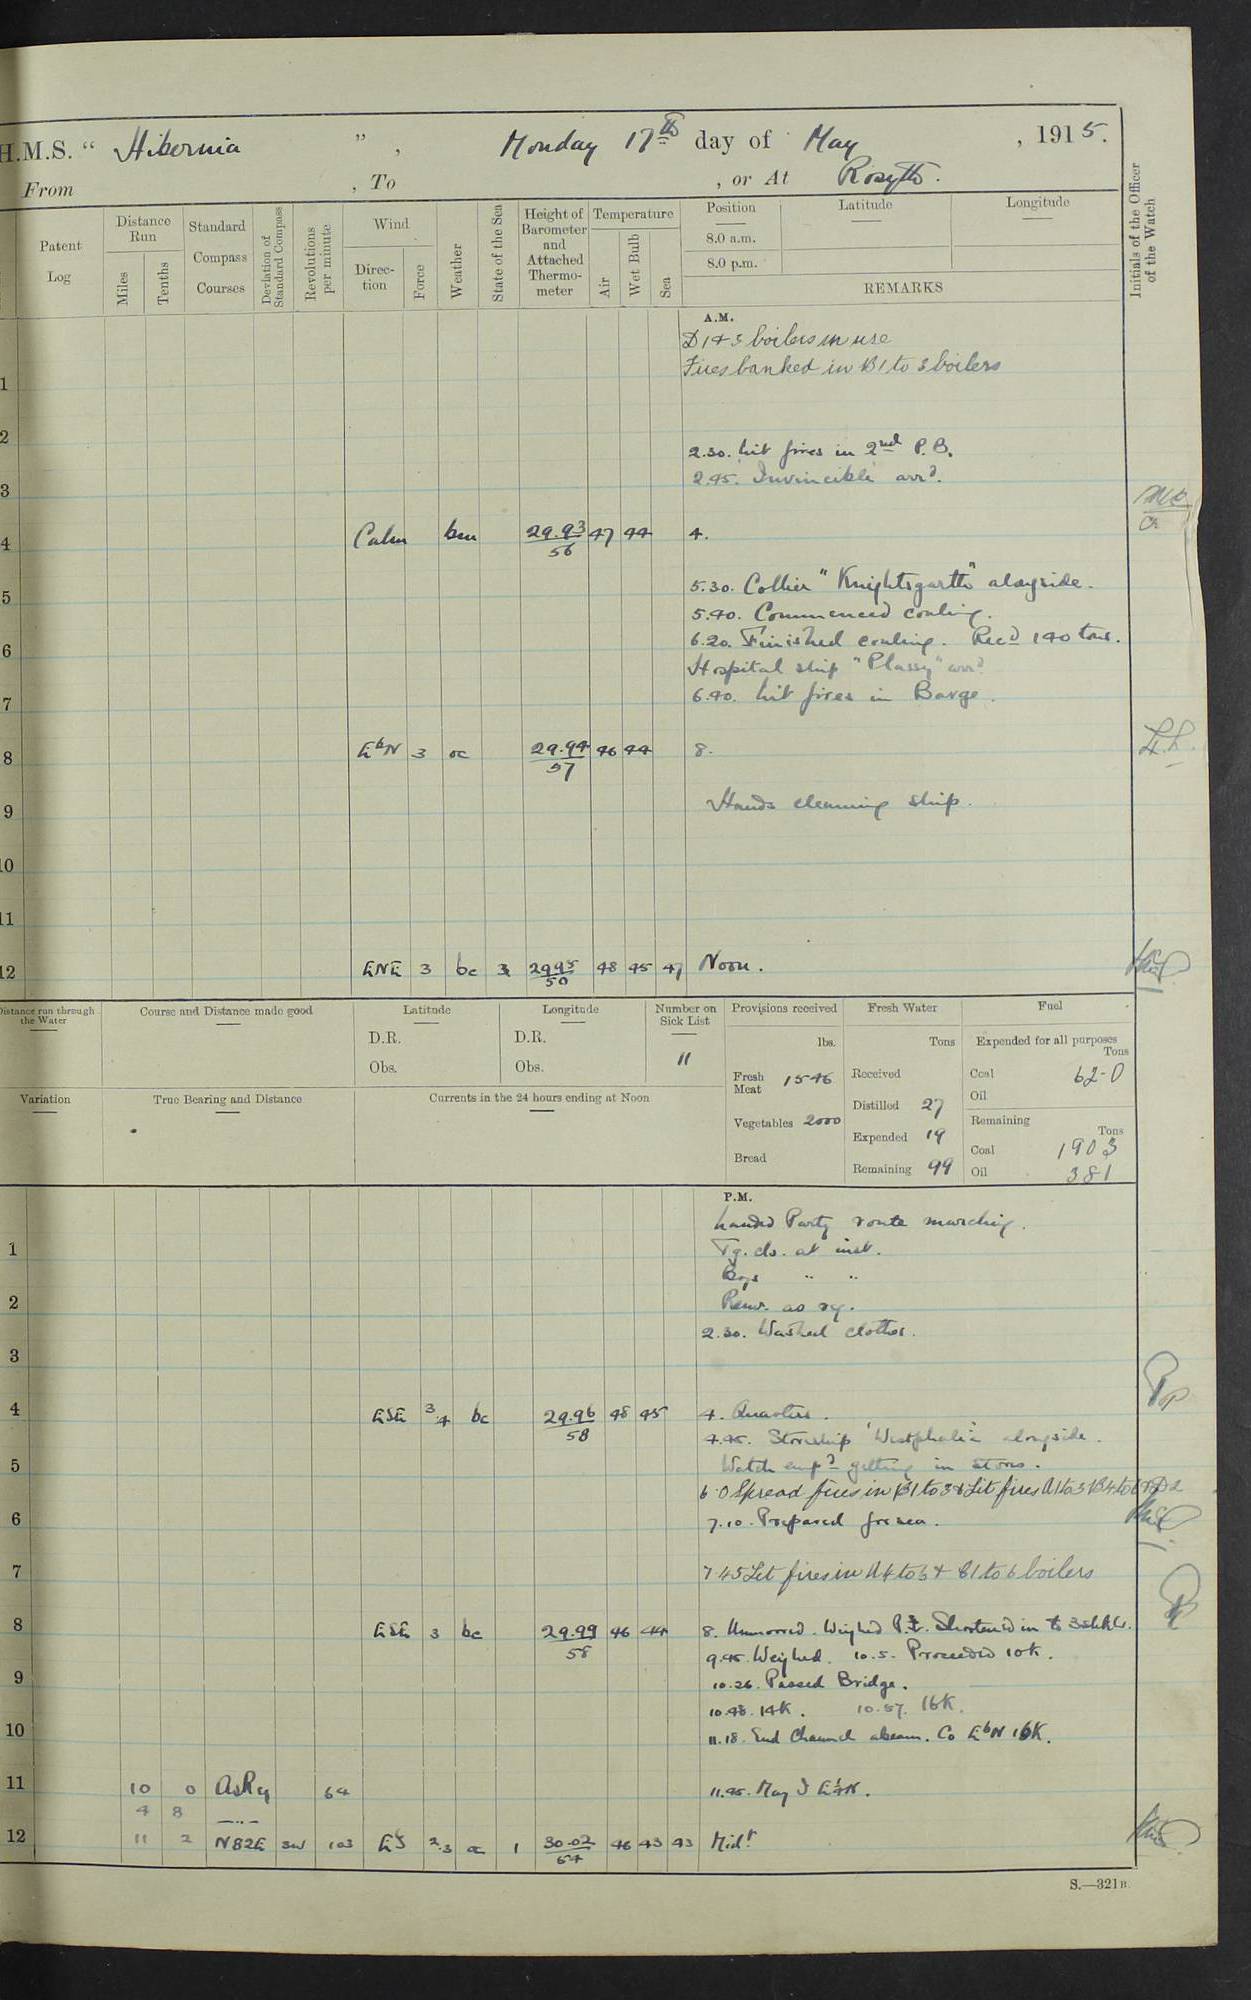 H.M.S. “ Hibernia ” , Monday 17th day of May , 1915.
From , To , or At Rosyth.
Patent Log
Distance Run
Miles
Tenths
Standard Compass Courses
Deviation of Standard Compass
Revolutions per minute
Wind
Direc-tion
Force
Weather
State of the Sea
Height of Barometer and Attached Thermo-meter
Temperature
Air
Wet Bulb
Sea
Position
Latitude
Longitude
8.0 a.m.
8.0 p.m.
REMARKS
Initials of the Officer of the Watch
A.M.
D 1 & 3 boilers in use
1 Fires banked in B1 to 3 boilers
2
2.30. Lit fires in 2nd P.B.
3 2.45. Invincible arrd.
4 Calm bm 29.93 47 44 4.
56
5 5.30. Collier "Knightsgarth" alongside.
5.40. Commenced coaling.
6 6.20. Finished coaling. Recd 140 tons.
Hospital ship "Plassy" arrd.
7 6.40. Lit fires in Barge.
8 EbN 3 oc 29.94 46 44 8.
57
9 Hands cleaning ship.
10
11
12 ENE 3 bc 29.95 48 45 47 Noon.
50
Distance run through the Water
Course and Distance made good
Latitude
D.R.
Obs.
Longitude
D.R.
Obs.
Number on Sick List
11
Provisions received
lbs.
Fresh Meat 1546
Vegetables 2000
Bread
Fresh Water
Tons
Received
Distilled 27
Expended 19
Remaining 99
Fuel
Expended for all purposes
Tons
Coal 62-0
Oil
Remaining
Tons
Coal 1903
Oil 381
Variation
True Bearing and Distance
Currents in the 24 hours ending at Noon
P.M.
Landed Party route marching.
1 Tg. cls. at inst.
Boys " "
2 Remr. as rq.
2.30. Washed clothes.
3
4 ESE 3.4 bc 29.96 48 45 4. Quarters.
58
4.45. Storeship 'Westphalia' alongside.
5 Watch empd getting in stores.
6.0 Spread fires in B1 to 3 & Lit fires A1 to 3 B4 to 6 & D2
6 7.10. Prepared for sea.
7 7 45 Lit fires in A4 to 6 & C1 to 6 boilers
8 ESE 3 bc 29.99 46 44 8. Unmoored. Weighed P.. Shortened in to 3 shkls.
58
9.45. Weighed. 10.5. Proceeded 10K.
9 10.26. Passed Bridge.
10.48. 14K. 10.57. 16K.
10 11.18. End Channel abeam. Co EbN 16K.
11 10 0 AsReq 64 11.45. May I
4 8
12 11 2 N82E 103 2.3 oc 1 30.02 46 43 43 Midt
S.—321B.